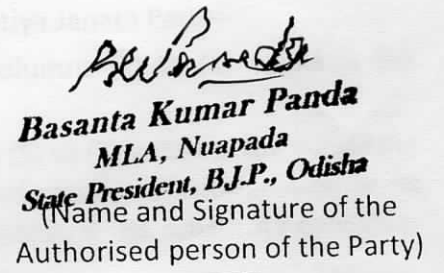 Basanta Kumar Panda
MLA, Nuapada
State President, B.J.P., Odisha
(Name and Signature of the
Authorised person of the Party)